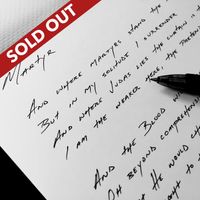 SOLD OUT
MARTYR
AND WHERE MARTYRS STAND THE
BUT IN MY SOLITUDE I SURRENDER
AND WHERE JUDAS LIES THE CURTAIN IS
I AM THE WEAKER HERE, THE
AND THE BLOOD
OH BEYOND COMPREHENS
HE WOULD